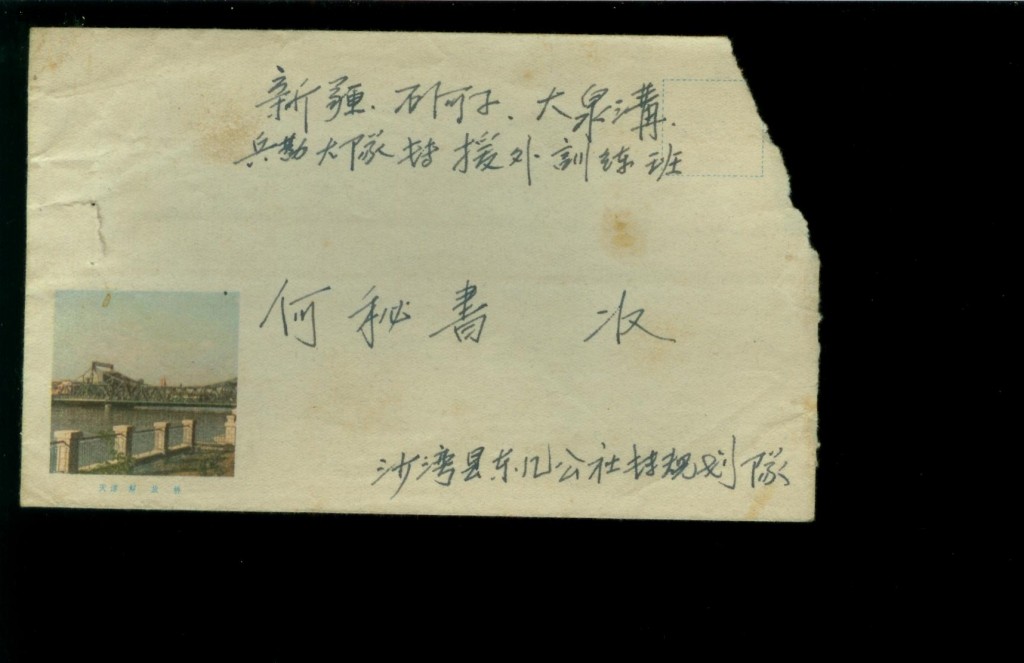 新疆、石河子、大泉溝、
兵勘大隊转援外訓练班
何秘書 收
沙湾县东风公社转规划隊
天津解放桥